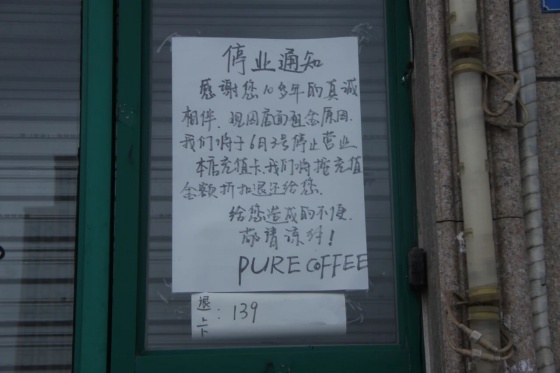 停业通知
感谢您10多年的真诚
相伴.现因店面租金原因.
我们将于6月3号停止营业
本店充值卡.我们将按充值
金额折扣退还给您.
给您造成的不便.
敬请谅解!
PURE COFFEE
退卡:139